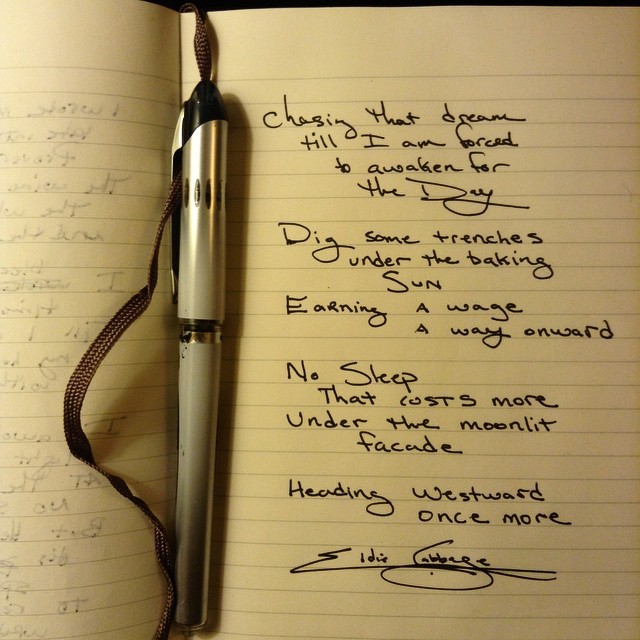 chasing that dream
till I am forced
to awaken for
the Day
Dig some trenches
under the baking
Sun
Earning a wage
a way onward
No Sleep
That costs more
Under the moonlit
facade
Heading Westward
once more